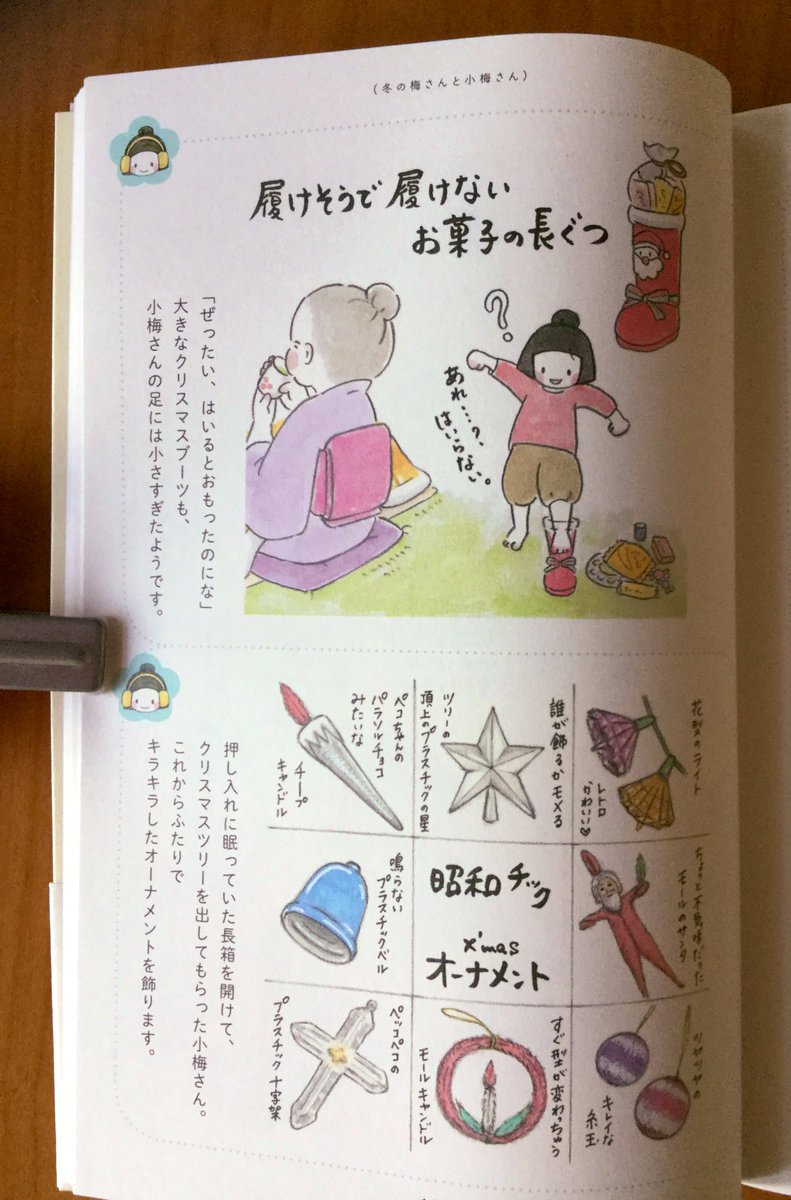 (冬の梅さんと小梅さん)
履けそうで履けない
お菓子の長ぐつ
あれ…?、
はいらない。
「ぜったい、はいるとおもったのにな」
大きなクリスマスブーツも、
小梅さんの足には小さすぎたようです。
花型のライト
レトロ
かわいい♥
誰が飾るかモメる
ツリーの
頂上のプラスチックの星
ペコちゃんの
パラソルチョコ
みたいな
チープ
キャンドル
ちょっと不気味だった
モールのサンタ
昭和チック
x'mas
オーナメント
鳴らない
プラスチックベル
ツヤツヤの
キレイな
糸玉
すぐ型が変わっちゃう
モールキャンドル
ペッコペコの
プラスチック十字架
押し入れに眠っていた長箱を開けて、
クリスマスツリーを出してもらった小梅さん。
これからふたりで
キラキラしたオーナメントを飾ります。